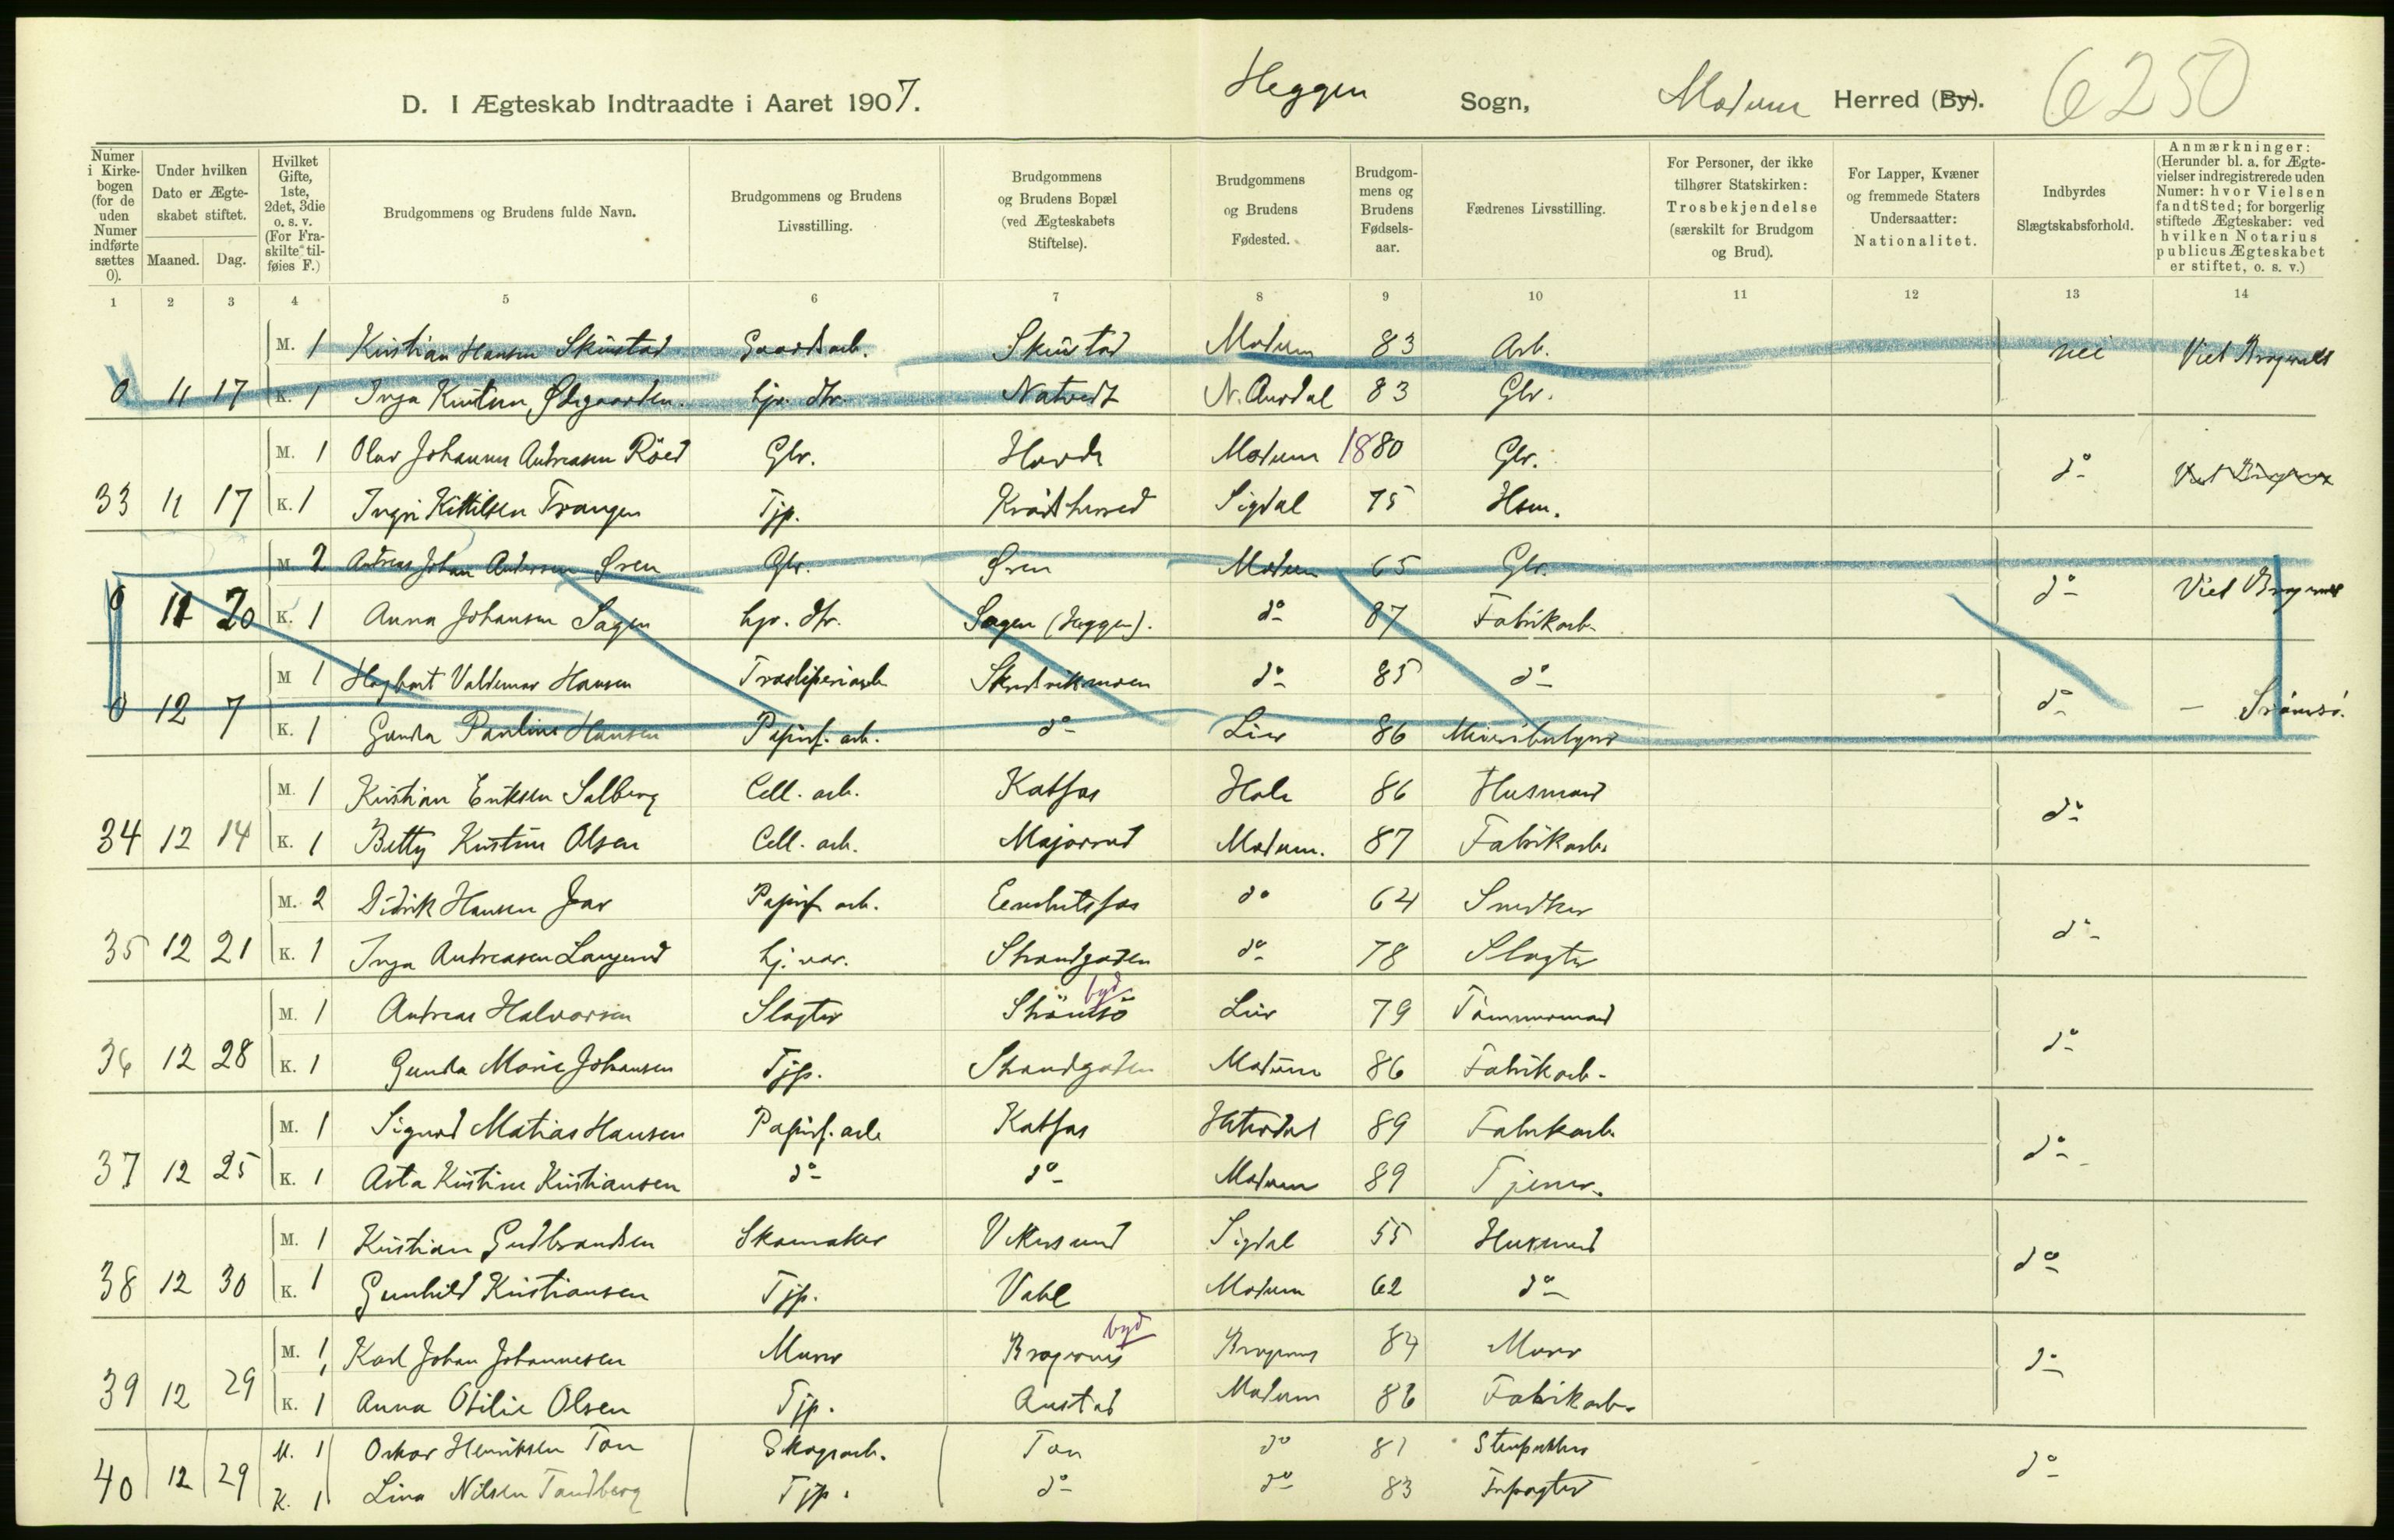 D. I Ægteskab Indtraadte i Aaret 1907. Heggen Sogn, Modum Herred (By). 6250
Numer i Kirkebogen (for de uden Numer indførte sættes 0).
Under hvilken Dato er Ægteskabet stiftet.
Maaned. Dag.
Hvilket Gifte, 1ste, 2det, 3die o. s. v. (For Fraskilte tilføies F.)
Brudgommens og Brudens fulde Navn.
Brudgommens og Brudens Livsstilling.
Brudgommens og Brudens Bopæl (ved Ægteskabets Stiftelse).
Brudgommens og Brudens Fødested.
Brudgommens og Brudens Fødselsaar.
Fædrenes Livsstilling.
For Personer, der ikke tilhører Statskirken: Trosbekjendelse (særskilt for Brudgom og Brud).
For Lapper, Kvæner og fremmede Staters Undersaatter: Nationalitet.
Indbyrdes Slægtskabsforhold.
Anmærkninger: (Herunder bl. a. for Ægtevielser indregistrerede uden Numer: hvor Vielsen fandt Sted; for borgerlig stiftede Ægteskaber: ved hvilken Notarius publicus Ægteskabet er stiftet, o. s. v.)
1 2 3 4 5 6 7 8 9 10 11 12 13 14
M. 1 Kristian Hansen Skinstad Gaardsarb. Skinstad Modum 83 Arb. nei Viet Bragernes
0 11 17 K. 1 Inga Kristine Ødegaarden hjv. dtr. Natvedt N. Aurdal 83 Gbr.
M. 1 Olav Johannes Andreasen Röed Gbr. Hovde Modum 1880 Gbr. do
33 11 17 K. 1 Ingri Kittilsen Trangen Tjp. Krödsherred Sigdal 75 Hsm.
M 2 Andreas Johan Andersen Øren Gbr. Øren Modum 65 Gbr. do Viet Bragernes
0 11 20 K. 1 Anna Johansen Sagen hjv. dtr. Sagen (Heggen). do 87 Fabrikarb.
M 1 Hagbart Valdemar Hansen Træsliperiarb. Skredviksmoen do 85 do do - Strömsö.
0 12 7 K. 1 Gunda Pauline Hansen Papirf. arb. do Lier 86
M. 1 Kristian Eriksen Solberg Cell. arb. Katfos Hole 86 Husmand do
34 12 14 K. 1 Betty Kristine Olsen Cell. arb. Majorrud Modum. 87 Fabrikarb.
M. 2 Didrik Hansen Papirf. arb. Embretsfos do 64 Snedker do
35 12 21 K. 1 Inga Andreasen Langerud hj. vær. Strandgaden do 78 Slagter
byd
M. 1 Andreas Halvorsen Slagter Strömsö Lier 79 Tömmermand do
36 12 28 K. 1 Gunda Marie Johansen Tjp. Strandgaden Modum 86 Fabrikarb.
M. 1 Sigurd Matias Hansen Papirf. arb. Katfos Hitterdal 89 Fabrikarb. do
37 12 25 K. 1 Asta Kristine Kristiansen do do Modum 89 Tjener.
M. 1 Kristian Gudbrandsen Skomaker Vikersund Sigdal 55 Husmand do
38 12 30 K. 1 Gunhild Kristiansen Tjp. Modum 62 do
byd
M. 1 Karl Johan Johannesen Murer Bragernes Bragernes 84 Murer do
39 12 29 K. 1 Anna Otilie Olsen Tjp. Austad Modum 86 Fabrikarb.
M. 1 Oskar Henriksen Ton Skogsarb. Ton do 81 do
40 12 29 K. 1 Lina Nilsen Tandberg Tjp. do do 83 Forpagter